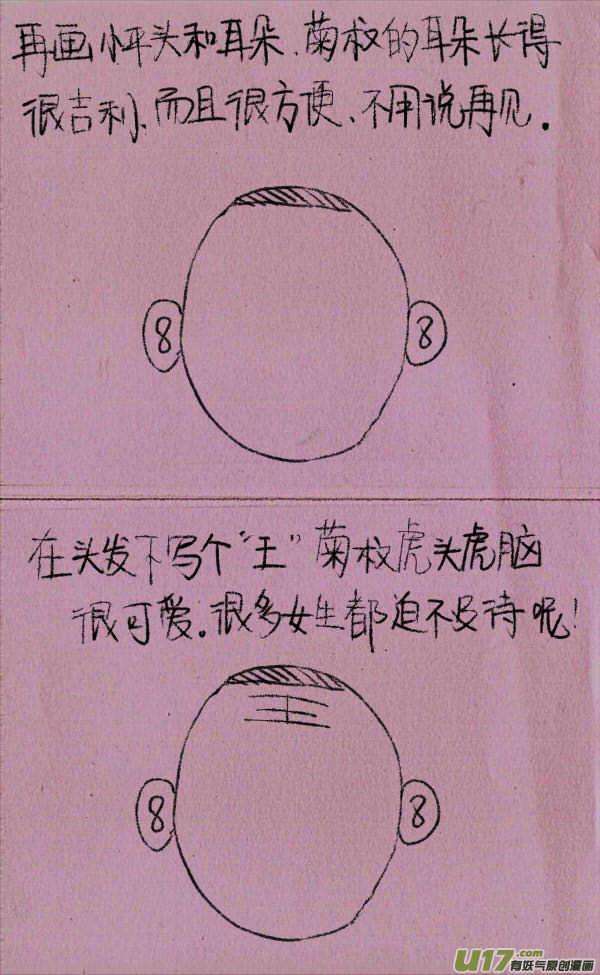 再画小平头和耳朵、菊叔的耳朵长得
很吉利、而且很方便、不用说再见.
8
8
在头发下写个“王”菊叔虎头虎脑
很可爱.很多女生都迫不及待呢!
王
8
8
U17.com
有妖气原创漫画